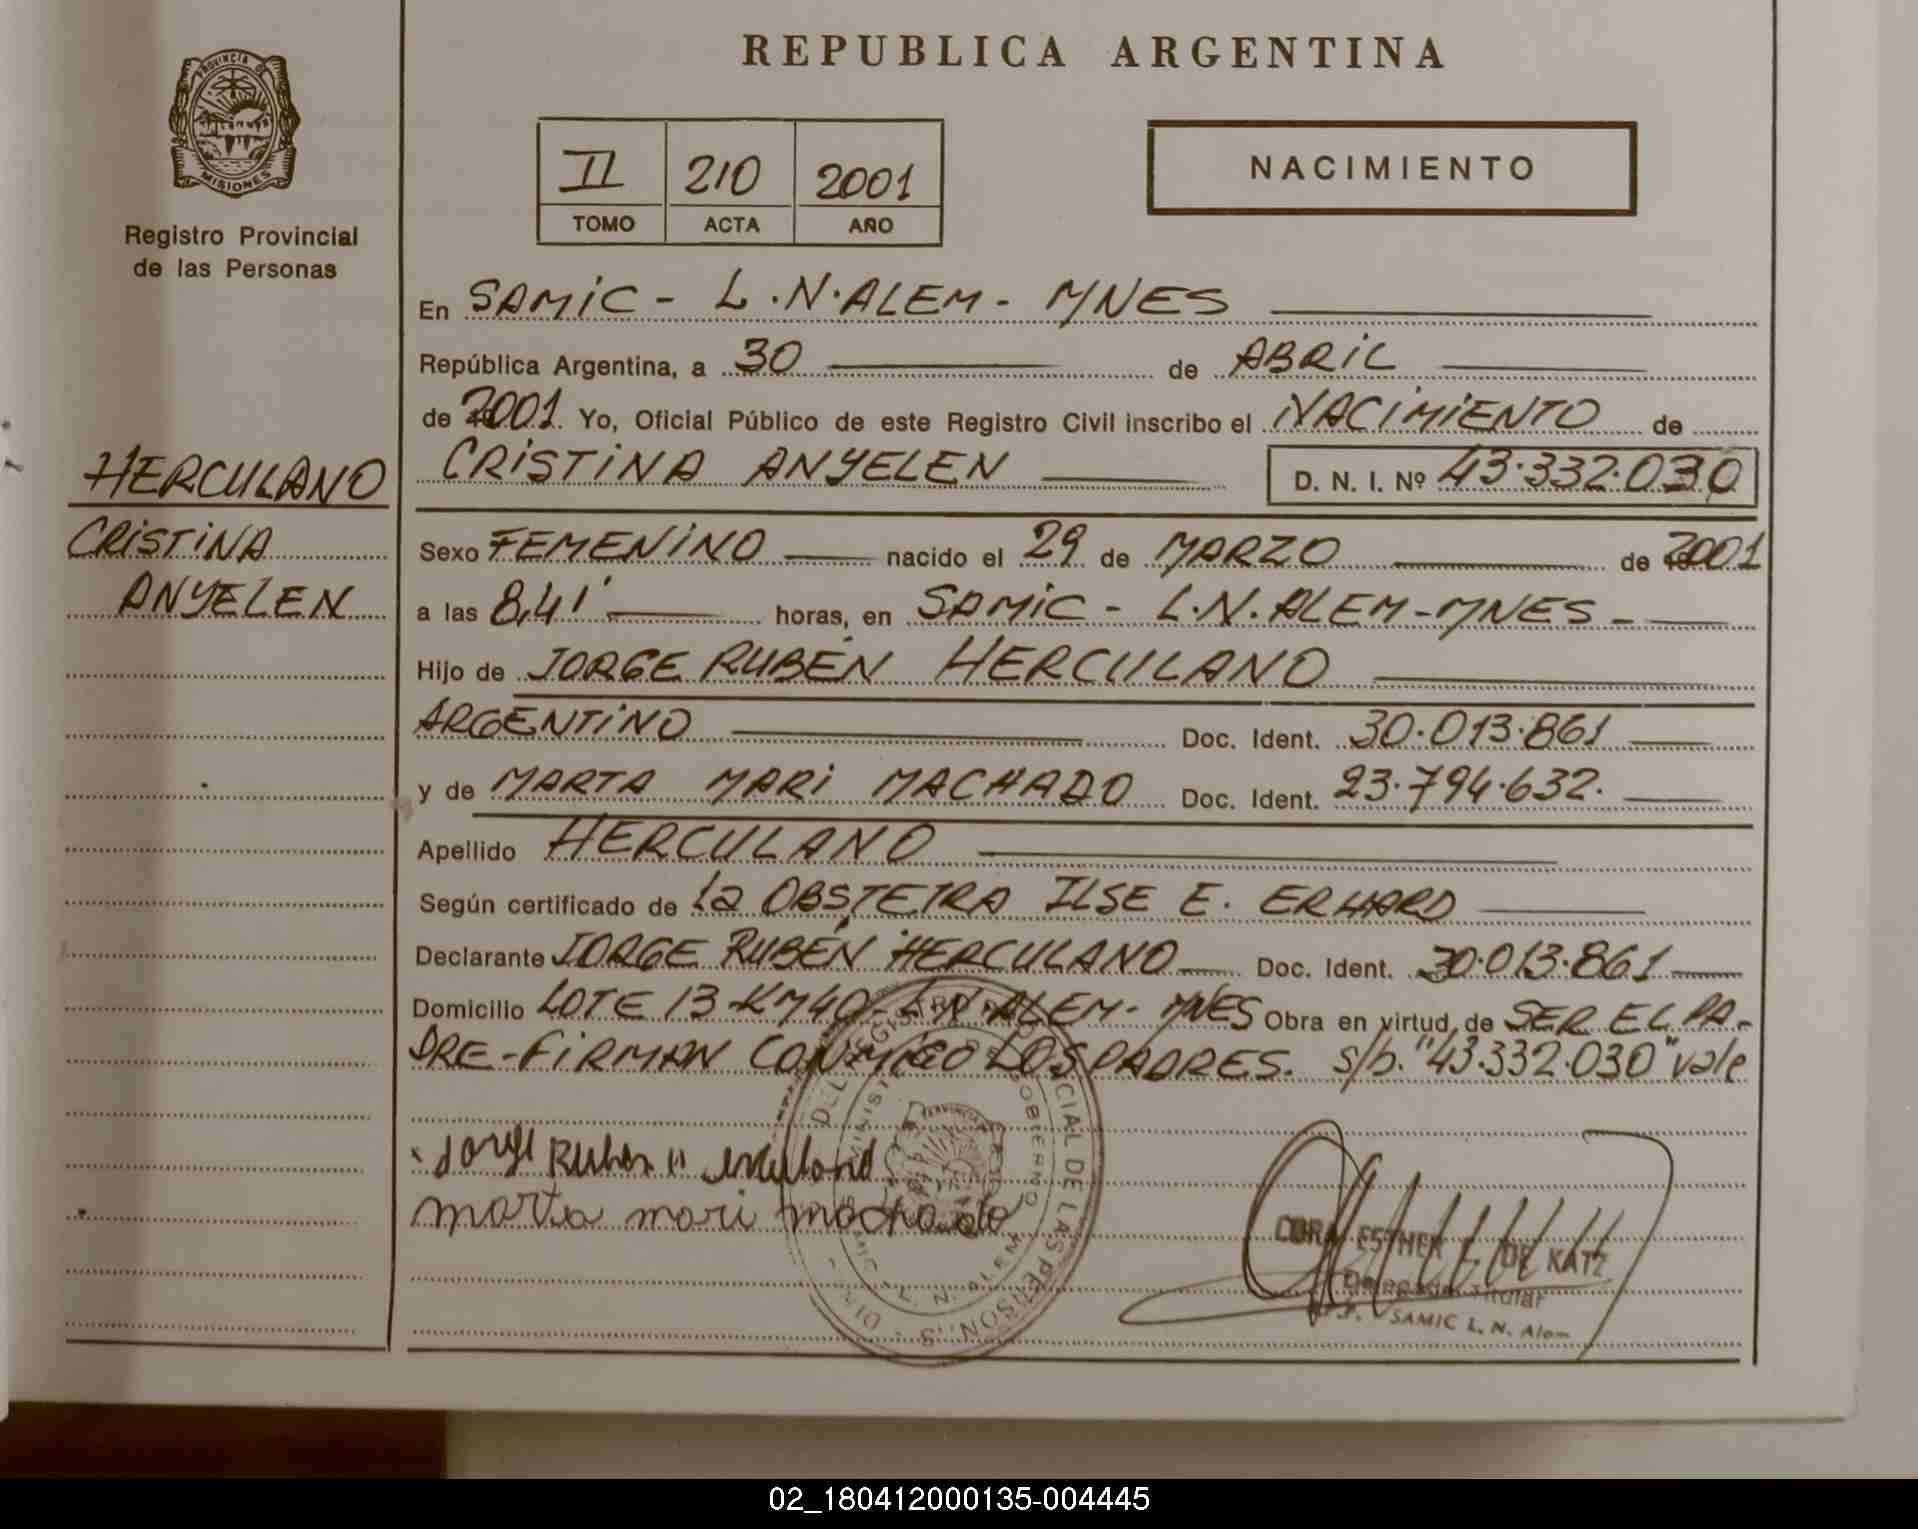 REPUBLICA ARGENTINA
PROVINCIA DE
MISIONES
Registro Provincial
de las Personas
II 210 2001
TOMO ACTA AÑO
NACIMIENTO
En SAMIC - L.N.ALEM - MNES
República Argentina, a 30 de ABRIL
de 2001. Yo, Oficial Público de este Registro Civil inscribo el NACIMIENTO de
HERCULANO
CRISTINA
ANYELEN
CRISTINA ANYELEN D. N. I. Nº 43.332.030
Sexo FEMENINO nacido el 29 de MARZO de 2001
a las 8,41' horas, en SAMIC - L.N.ALEM-MNES -
Hijo de JORGE RUBÉN HERCULANO
ARGENTINO Doc. Ident. 30.013.861
y de MARTA MARI MACHADO Doc. Ident. 23.794.632.
Apellido HERCULANO
Según certificado de la OBSTETRA ILSE E. ERHARD
Declarante JORGE RUBÉN HERCULANO Doc. Ident. 30.013.861
Domicilio LOTE 13-KM40-L.N.ALEM- MNES Obra en virtud de SER EL PA-
DRE-FIRMAN CONMIGO LOS PADRES. s/b. "43.332.030" vale
Jorge Ruben
marta mari machado
CORA ESTHER F. DE KATZ
Delegada Titular
SAMIC L. N. Alem
02_180412000135-004445